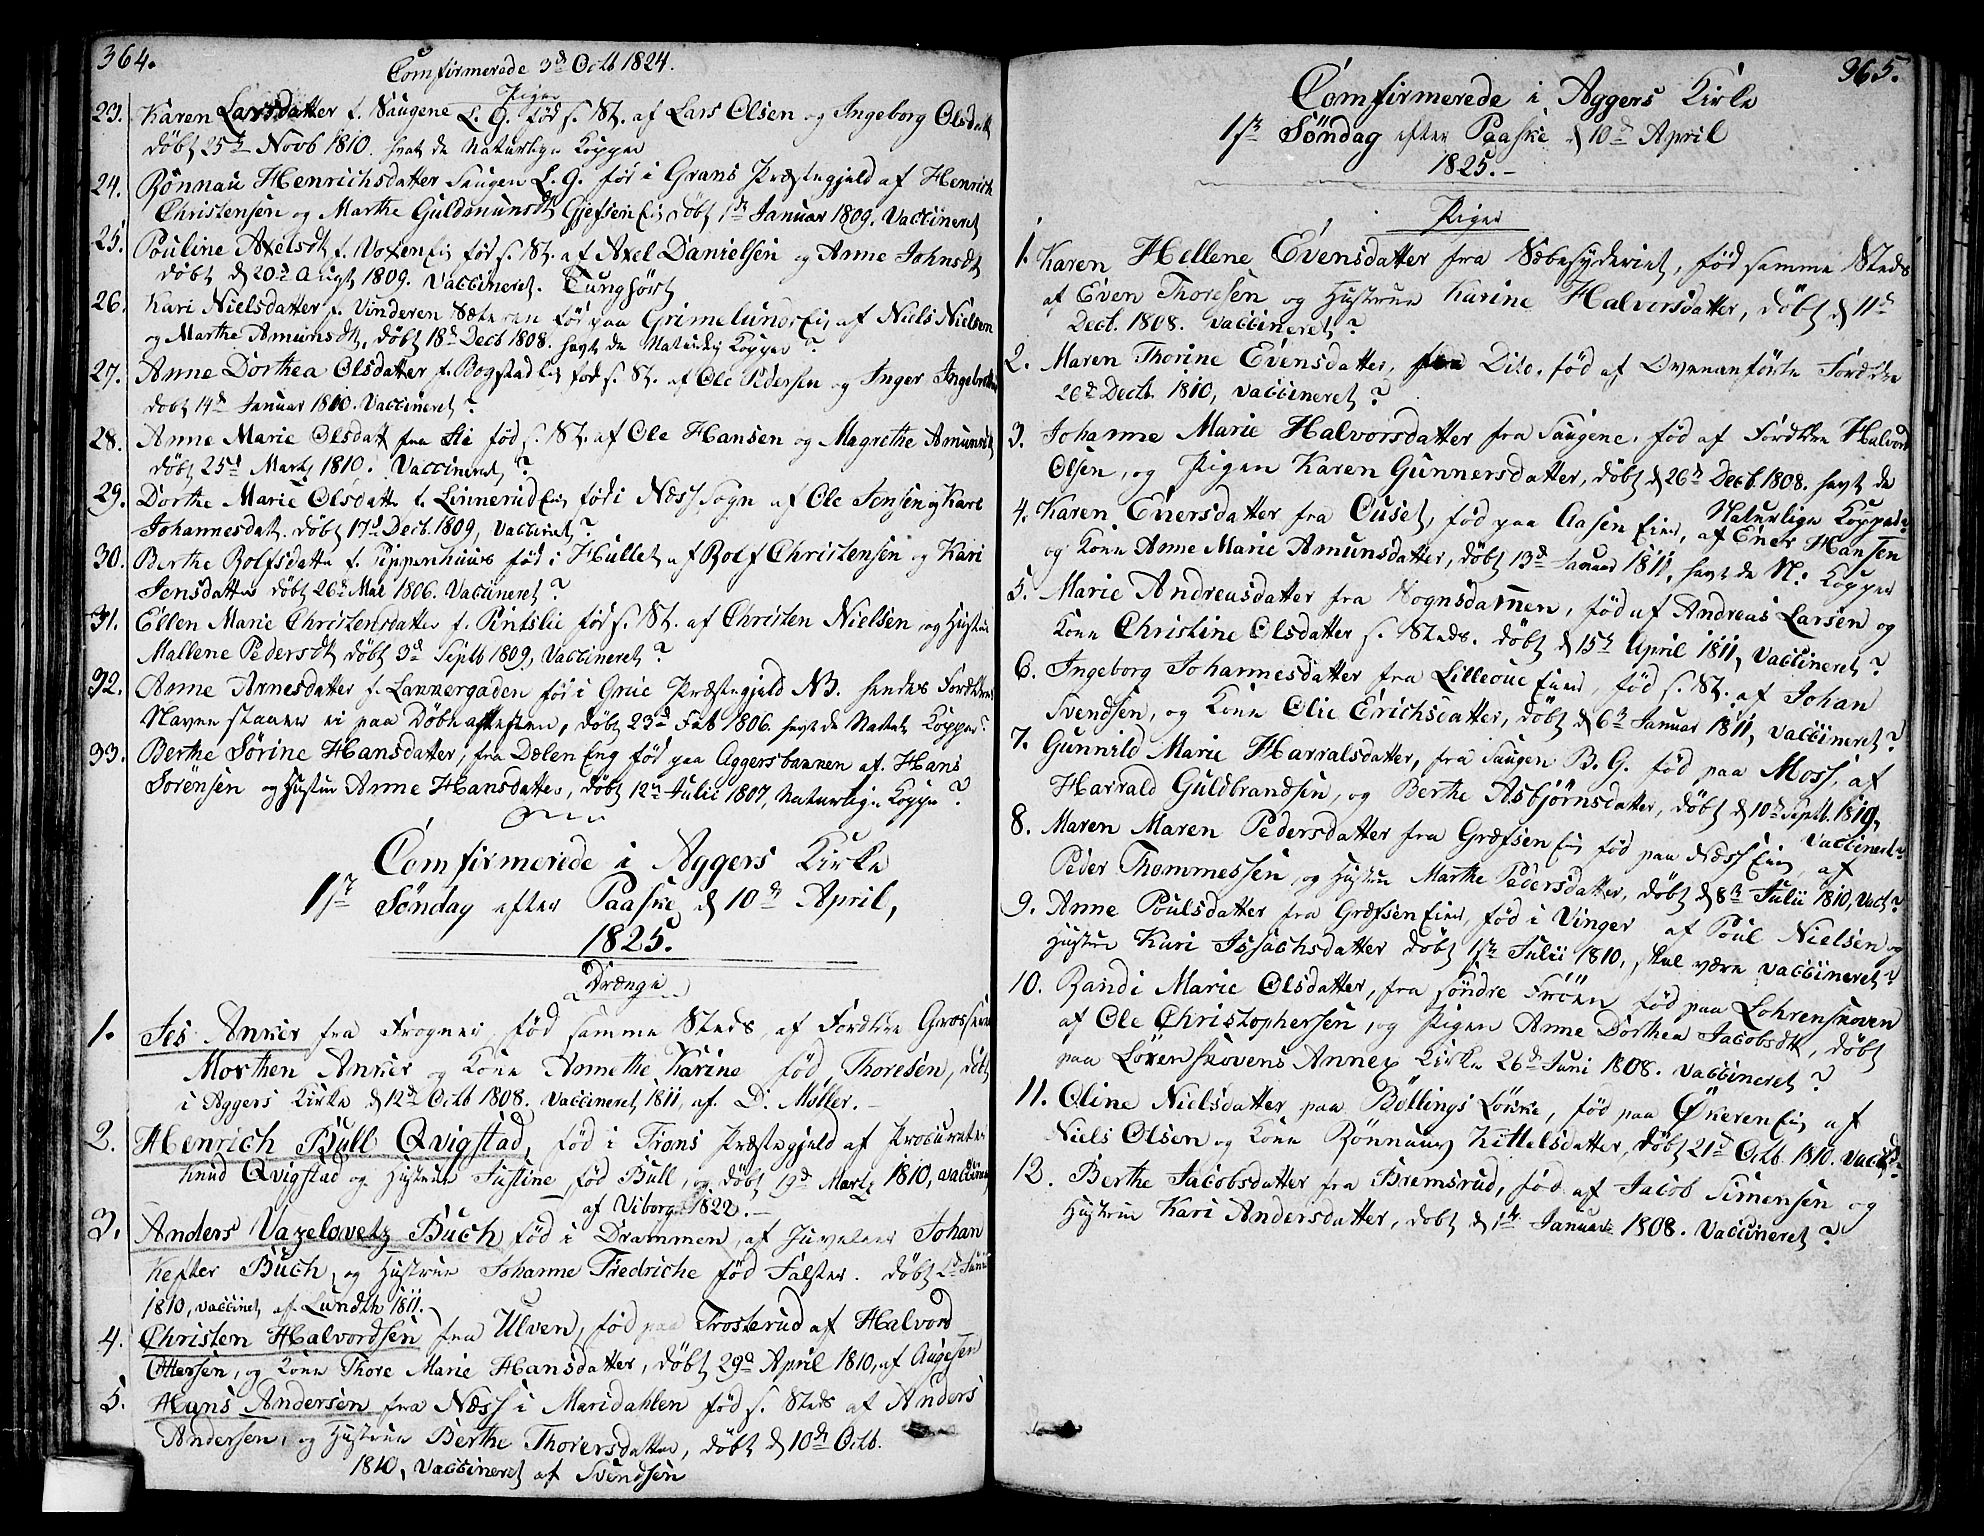 364.
Comfirmerede 3d Octb 1824.
Piger
23. Karen Larsdatter f. Saugene L. G. fød s. St. af Lars Olsen og Ingeborg Olsdatt
døbt 25de Novb 1810. havt de Naturlige Kopper
24. Rönnau Henrichsdatter Saugen L. G. fød i Grans Præstegjeld af Henrich
Christensen og Marthe Guldmunsdt Gjefsen Eie døbt 1ste Januar 1809. Vaccineret
25. Pouline Axelsdt f. Voxen Eie fød s. St. af Axel Danielsen og Anne Johnsdt
døbt d 20de Augt 1809. Vaccineret. Tunghört
26. Kari Nielsdatter f. Vinderen Sæteren fød paa Grimelunds Eie af Niels Nielsen
og Marthe Amunsdt, døbt 18de Decb 1808. havt de Naturlig Kopper?
27. Anne Dorthea Olsdatter f. Bogstad Eie fød s. St. af Ole Pedersen og Inger Ingebretsd
døbt 14de Januar 1810. Vaccineret?
28. Anne Marie Olsdatt fra Hie fød s. St. af Ole Hansen og Magrethe Amunsdt
døbt 25d Marts 1810. Vaccineret?
29. Dorthe Marie Olsdatte f. Linnerud Eie fød i Næss Sogn af Ole Jensen og Kari
Johannesdat. døbt 17d Decb. 1809, Vaccinet?
30. Berthe Rolfsdatte f. Pipperhuus fød i Hullet af Rolf Christensen og Kari
Jensdatter døbt 26de Mai 1806. Vaccineret?
31. Ellen Marie Christensdatter f. Pintslie fød s. St. af Christen Nielsen og Hustru
Mallene Pedersdt døbt 3d Septb 1809, Vaccineret?
32. Anne Arnesdatter f. Lakkergaden fød i Grue Præstegjeld NB. hendes Forældres
Navne staaer ei paa Døbeattesten, døbt 23d Feb 1806. havt de Naturl Kopper?
33. Berthe Sörine Hansdatter, fra Dælen Eng fød paa Aggersbakken af Hans
Sörensen og Hustru Anne Hansdatter, døbt 12te Julii 1807, Naturlige Kopper?
Comfirmerede i Aggers Kirke
1ste Søndag efter Paaske d 10de April,
1825.
Drænge
1. Jes Anker fra Frogner fød samme Steds af Forældre Grosserer
Morthen Anker og Kone Annette Karine fød Thoresen, døbt
i Aggers Kirke d 12te Octb 1808. Vaccineret 1811, af D. Møller.
2. Henrich Bull Qvigstad, fød i Troms Præstegjeld af Procurator
Knud Qvigstad og Hustrue Justine fød Bull, og døbt 19d Marts 1810, vaccineret
af Viborg 1822.
3. Anders Vazelovetz Buch fød i Drammen, af Juveleer Johan
Kefter Buch, og Hustrue Johanne Fredriche fød Falster. døbt Juni
1810, vaccinet af Lundth 1811.
4. Christen Halvordsen fra Ulven, fød paa Trosterud af Halvord
Ottersen, og Kone Thore Marie Hansdatter, døbt 29d April 1810, af Augesen
5. Hans Andersen fra Næss i Maridahlen fød s. Steds af Anders
Andersen, og Hustrue Berthe Thorersdatter, døbt d 10de Octb.
1810, Vaccineret af Svendsen
365.
Comfirmerede i Aggers Kirke
1ste Søndag efter Paaske d 10de April
1825.
Piger
1. Karen Hellene Evensdatter fra Sæbesyderiet, fød samme Steds
af Even Thoresen og Hustrue Karine Halvorsdatter, døbt d 11de
Decb. 1808. vaccineret?
2. Maren Thorine Evensdatter, fra Dito. fød af Ovenanførte Forældre
26de Decb. 1810, vaccineret?
3. Johanne Marie Halvorsdatter fra Saugene, fød af Forældre Halvord
Olsen, og Pigen Karen Gunnersdatter, døbt d 26de Decb. 1808. havt de
Naturlige Kopper?
4. Karen Enersdatter fra Ouset, fød paa Aasen Eier, af Ener Hansen
og Kone Anne Marie Amunsdatter, døbt 13de Januar 1811, havt de N: Kopper
5. Marie Andreasdatter fra Sognsdammen, fød af Andreas Larsen og
Kone Christine Olsdatter s. Steds. døbt d 15de April 1811, Vaccineret?
6. Ingeborg Johannesdatter fra Lilleoue Eier, fød s. St. af Johan
Svendsen, og Kone Olie Erichsdatter, døbt d 6te Januar 1811, vaccineret?
7. Gunnild Marie Harralsdatter, fra Saugen B. G. fød paa Moss, af
Harrald Guldbrandsen, og Berthe Asbjørnsdatter, døbt d 10de Septb. 1810,
Vaccineret?
8. Maren Maren Pedersdatter fra Græfsen Eie fød paa Næss Eie, af
Peder Thommessen, og Hustrue Marthe Pedersdatter, døbt d 8te Julii 1810, Vact?
9. Anne Poulsdatter fra Græfsen Eier, fød i Vinger af Poul Nielsen og
Hustrue Kari Issachsdatter døbt 1ste Julii 1810, skal være vaccineret?
10. Randi Marie Olsdatter, fra søndre Frøen fød paa Lohrenskoven
af Ole Christophersen, og Pigen Anne Dorthea Jacobsdtt, døbt
paa Lørenskovens Annex Kirke 26de Juni 1808. vaccineret?
11. Oline Nielsdatter paa Böllings Løkke, fød paa Økeren Eie af
Niels Olsen og Kone Rönnaug Kittelsdatter, døbt 21de Octb. 1810. Vaccid?
12. Berthe Jacobsdatter fra Bremsrud, fød af Jacob Simensen og
Hustrue Kari Andersdatter, døbt d 1ste Januar 1808. Vaccineret?